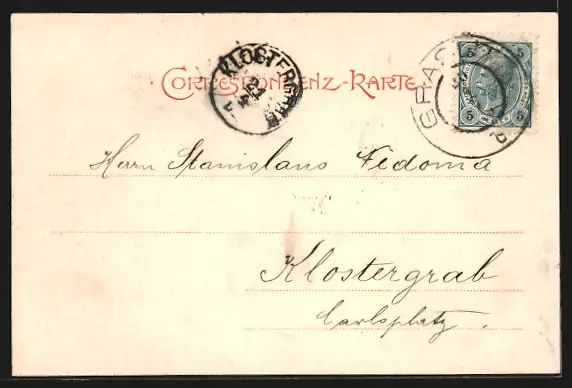 CORRESPONDENZ-KARTE
KLOSTERGRAB
5 5
5 5
Herrn Stanislaus Fedoma
Klostergrab
Carlsplatz